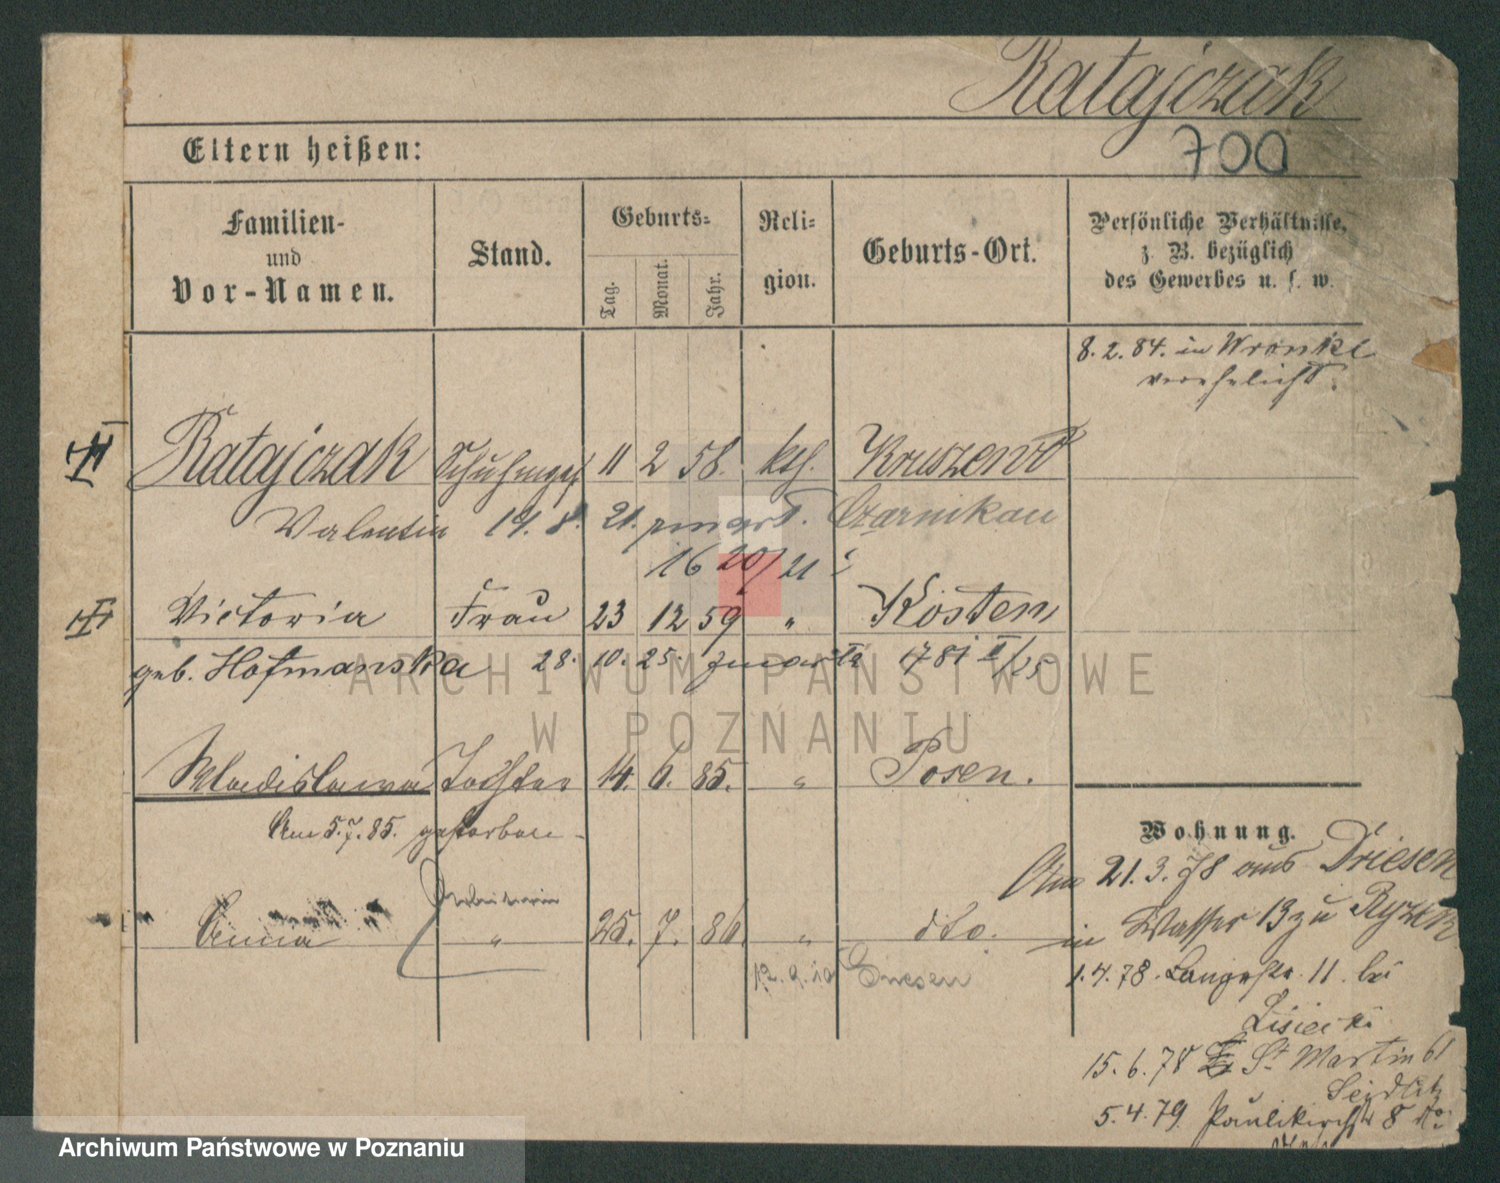 Ratajczak
700
Eltern heißen:
Familien-
und
Vor-Namen.
Stand.
Geburts-
Tag.
Monat.
Jahr.
Reli-
gion.
Geburts-Ort.
Persönliche Verhältnisse,
z. B. bezüglich
des Gewerbes u. s. w.
8. 2. 84. in Wronke
verehelicht.
II Ratajczak Schuhmges 11 2 58. kth.
Valentin 14. 8. 21. Czarnikau
16 20/21
II Victoria Frau 23 12 59 " Kosten
geb. Hofmanska 28. 10. 25.
Wladislawa Tochter 14. 6. 85. " Posen.
Am 5.7.85. gestorben
Arbeiterin
Anna " 25. 7. 86. " dto.
12. 9. 10 Gnesen
Wohnung.
Am 21. 3. 78 aus Driesen
in Wasser 13 zu
1. 4. 78. Langestr. 11. bei
Lisiecki
15. 6. 78 St. Martin 61
Seidlitz
5. 4. 79. Paulikirchstr 8
ARCHIWUM PAŃSTWOWE
W POZNANIU
Archiwum Państwowe w Poznaniu